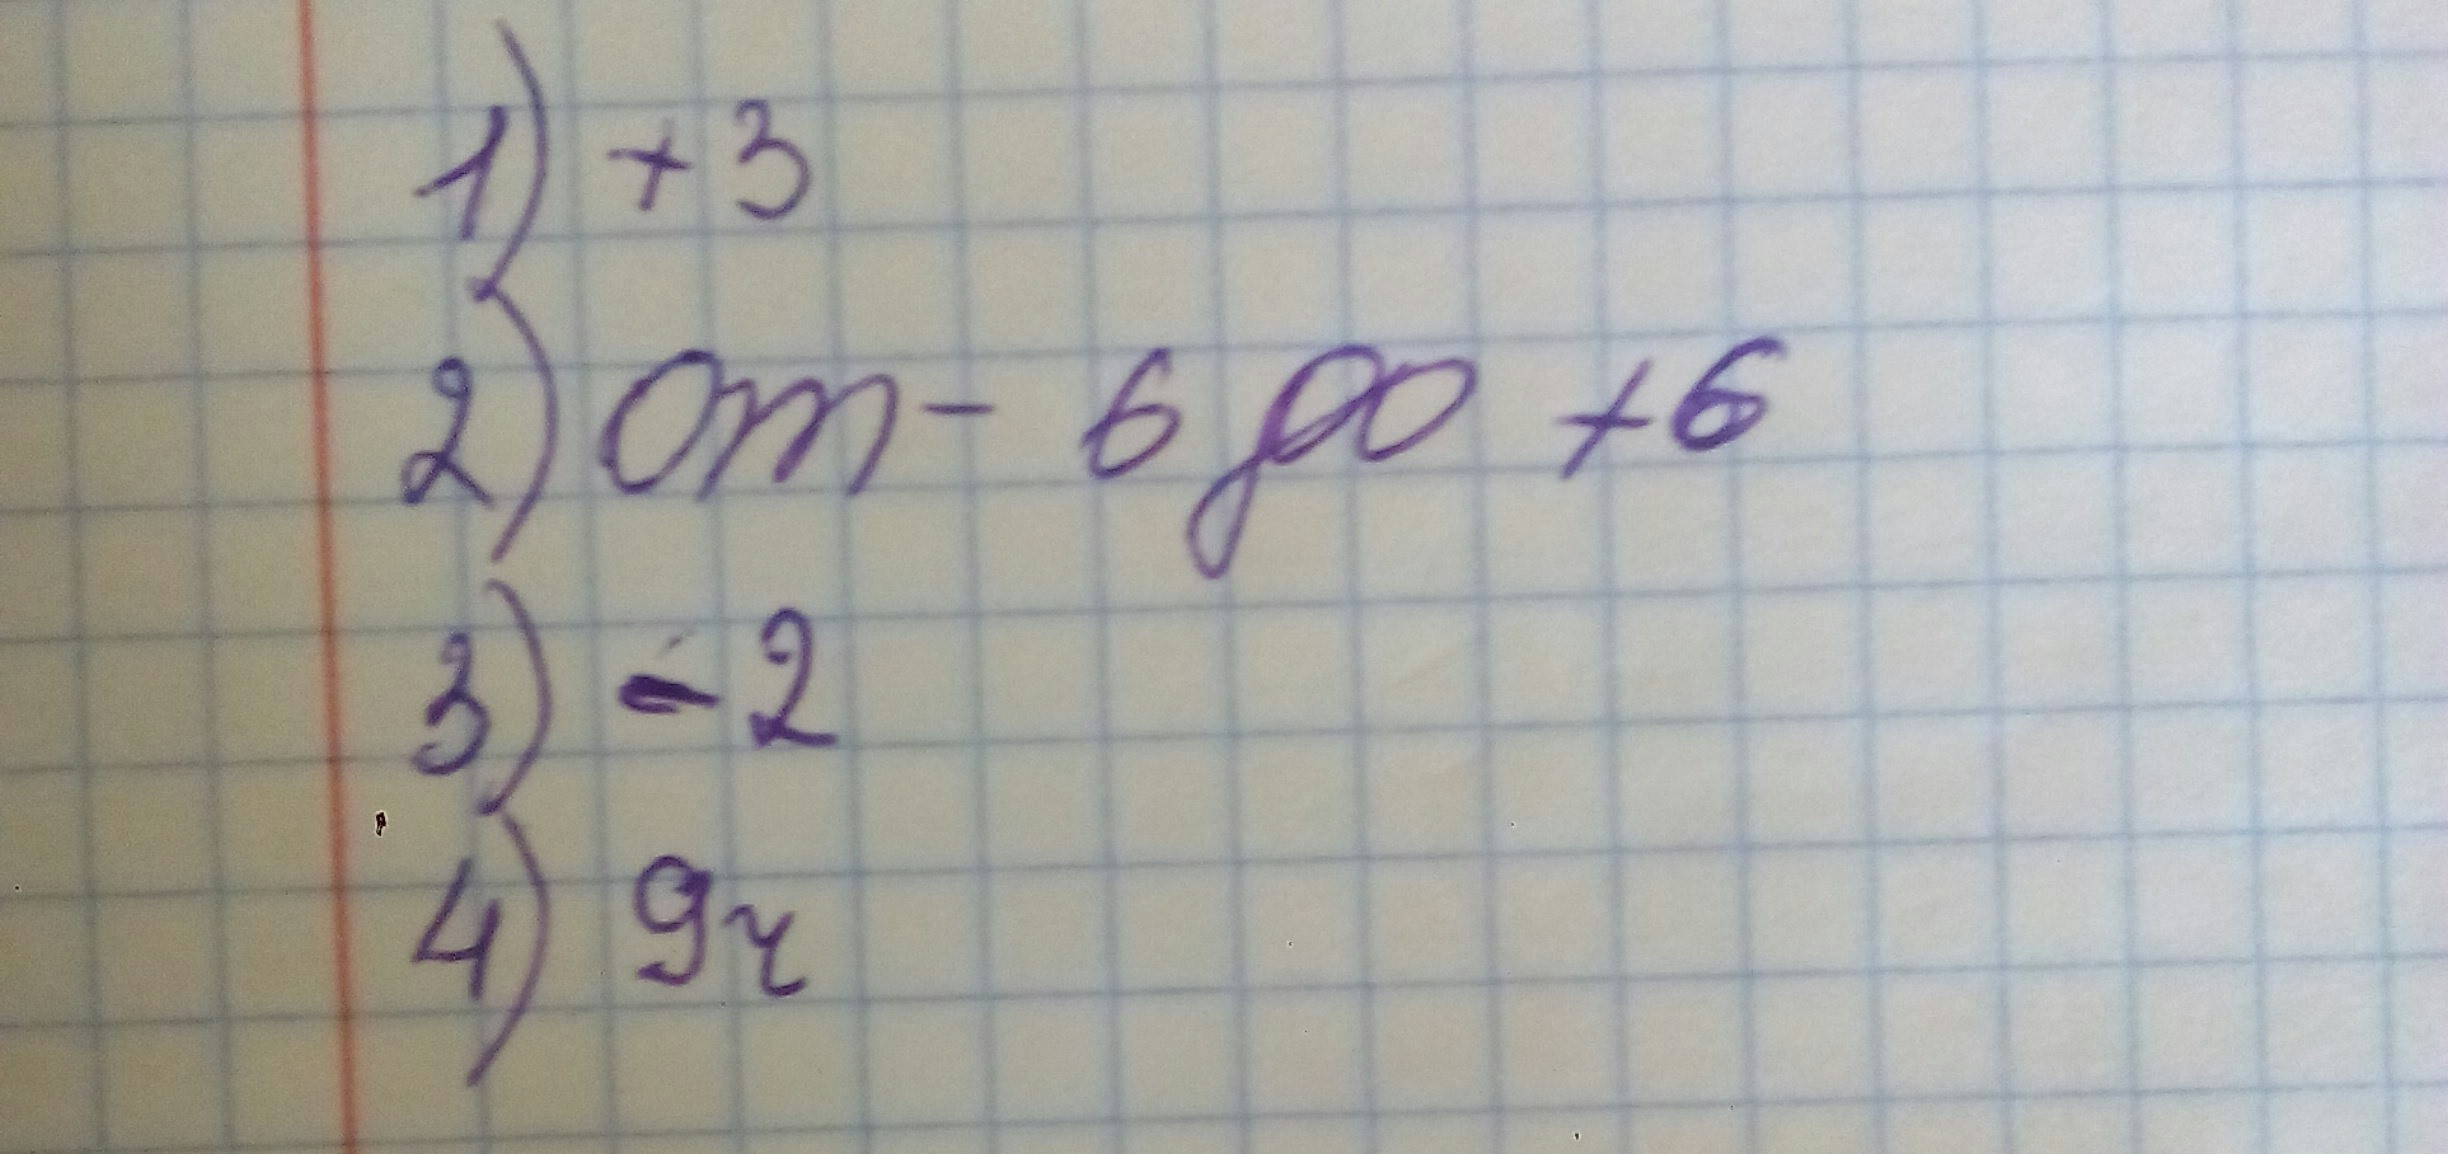 1) +3
2) От - 6 до +6
3) -2
4) 9ч